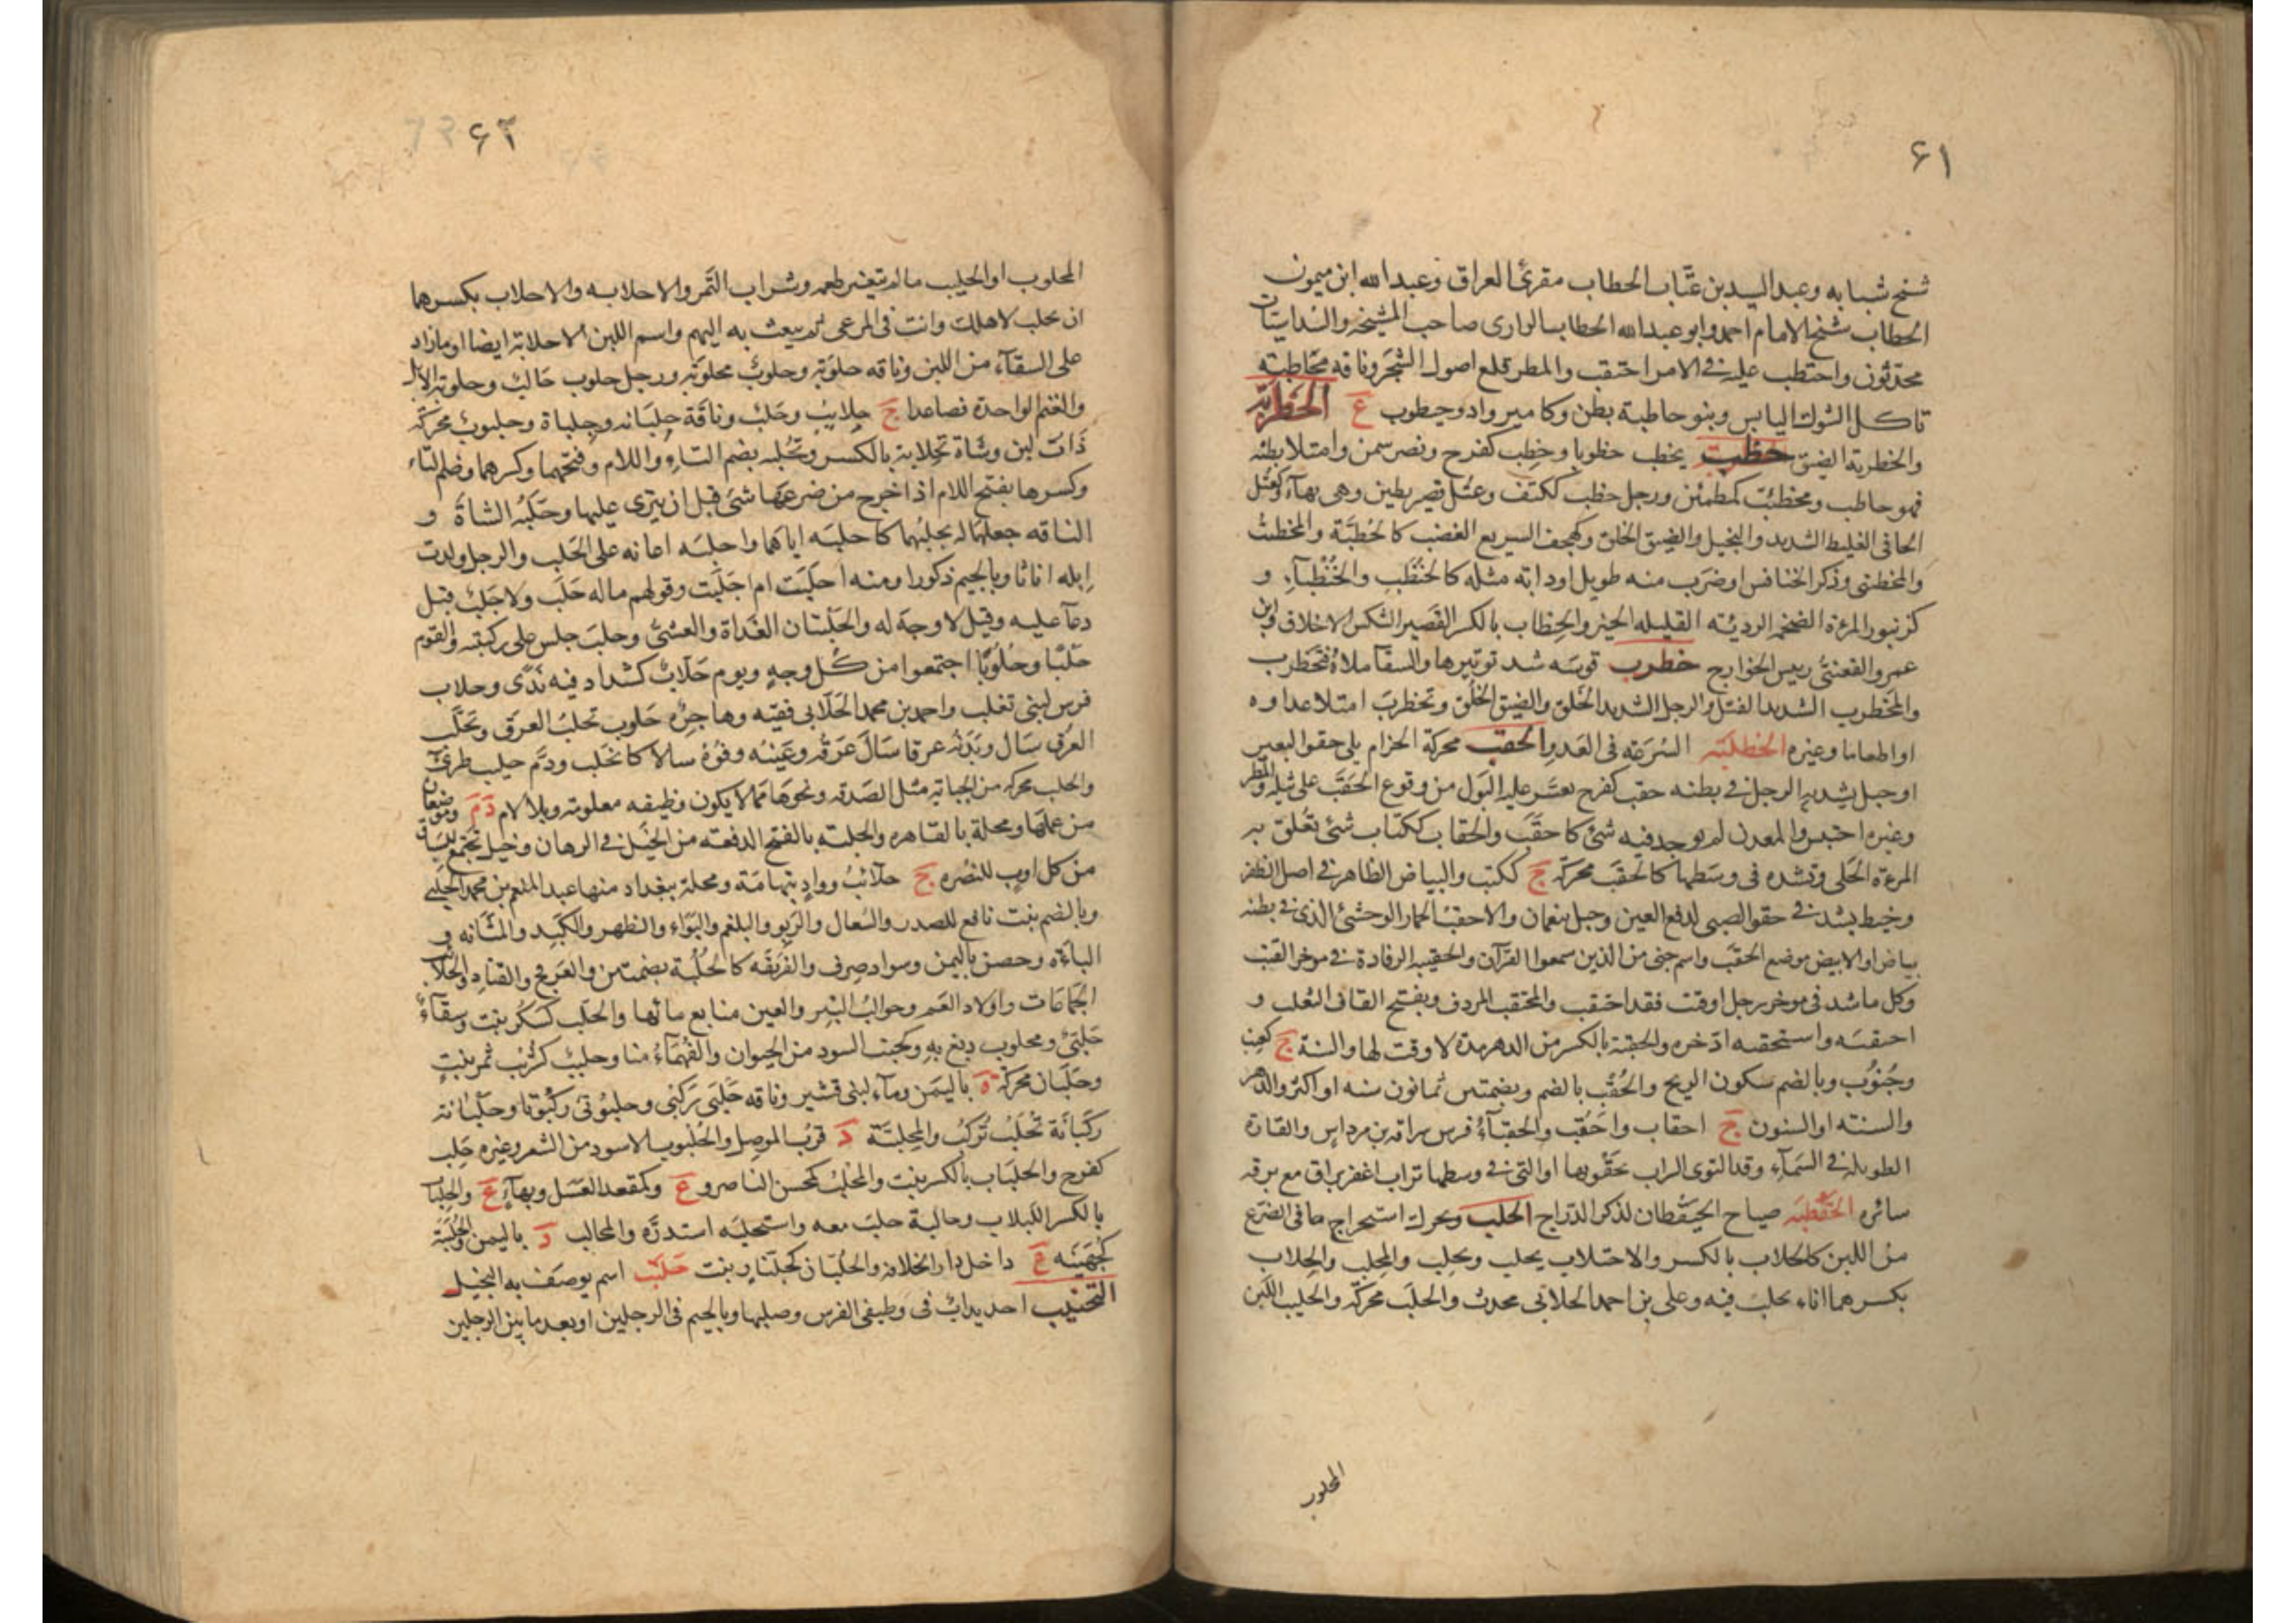 ٦١
شيخ شبابه وعبد السيد بن عتّاب الحطاب مقرئ العراق وعبد الله ابن ميمون
الحطاب شيخ الامام احمد وابو عبد الله الحطاب الرازى صاحب المشيخه والسداسيات
محدثون واحتطب عليه فى الامر احتقب والمطر قلع اصول الشجر وناقه محاطبه
تاكل الشوك اليابس وبنو حاطبة بطن وكامير واد وحيطوب ع الحظربة
والخطربة الضيق حظب يحظب حظوبا وحظب كفرح ونصر سمن وامتلا بطنه
فهو حاظب ومحظئب كمطمئن ورجل حظب ككتف وعتل قصير بطين وهى بهاء وكعتل
الجافى الغليظ الشديد والبخيل والضيق الخلق وكهجف السريع الغضب كالحظبة والمحظئب
والمحظنبى وذكر الخنافس او ضرب منه طويل او دابه مثله كالحنظب والحنظباء و
كزنبور المرءة الضخمه الرديئه القليله الخير والحنظاب بالكسر القصير الشكس الاخلاق وابن
عمرو الفقعسى رييس الخوارج حظرب قوسه شد توتيرها والسقا ملاه فتحظرب
والمحظرب الشديد الفتل والرجل الشديد الخلق والضيق الخلق وتحظرب امتلا عداوه
او طعاما وغيره الحظلبه السرعه فى العدو الحقب محركة الحزام يلى حقو البعير
او حبل يشد به الرجل فى بطنه حقب كفرح تعسر عليه البول من وقوع الحقب على ثيله والمطر
وغيره احتبس والمعدن لم يوجد فيه شئ كاحقب والحقاب ككتاب شئ تعلق به
المرءة الحلى وتشده فى وسطها كالحقب محركة ج ككتب والبياض الظاهر فى اصل الظفر
وخيط يشد فى حقو الصبى لدفع العين وجبل بنعمان والاحقب الحمار الوحشى الذى فى بطنه
بياض او الابيض موضع الحقب واسم جنى من الذين سمعوا القرآن والحقيبه الرفادة فى موخر القتب
وكل ما شد فى موخر رحل او قتب فقد احتقب والمحقب المردف وبفتح القاف الثعلب و
احتقبه واستحقبه ادخره والحقبة بالكسر من الدهر مدة لا وقت لها والسنة ج كعنب
وجنوب وبالضم سكون الريح والحقب بالضم وبضمتين ثمانون سنه او اكثر والدهر
والسنته او السنون ج احقاب واحقب والحقباء فرس سراقه بن مرداس والقارة
الطويله فى السماء وقد التوى السراب بحقويها او التى فى وسطها تراب اغفر براق مع برقه
سائره الحقطبه صياح الحيقطان لذكر الدراج الحلب ويحرك استخراج ما فى الضرع
من اللبن كالحلاب بالكسر والاحتلاب يحلب ويحلب والمحلب والحلاب
بكسرهما اناء يحلب فيه وعلى بن احمد الحلابى محدث والحلب محركة والحليب اللبن
المحلوب
٦٢
المحلوب او الحليب ما لم يتغير طعمه وشراب التمر والاحلابه والاحلاب بكسرهما
ان تحلب لاهلك وانت فى المرعى ثم يبعث به اليهم واسم اللبن الاحلابة ايضا او ما زاد
على السقاء من اللبن وناقه حلوبة وحلوب محلوبة ورجل حلوب حالب وحلوبة الابل
والغنم الواحدة فصاعدا ج حلايب وحلب وناقة حلبانه وحلباة وحلبوت محركة
ذات لبن وشاة تحلابة بالكسر وتحلبه بضم التاء واللام وفتحهما وكسرهما وضم التاء
وكسرها بفتح اللام اذا خرج من ضرعها شئ قبل ان ينزى عليها وحلبه الشاة و
الناقه جعلهما له يحلبهما كاحلبه اياهما واحلبه اعانه على الحلب والرجل ولدت
ابله اناثا وبالجيم ذكورا ومنه احلبت ام اجلبت وقولهم ماله حلب ولا جلب قيل
دعا عليه وقيل لا وجه له والحلبتان الغداة والعشى وحلب جلس على ركبته والقوم
حلبا وحلوبا اجتمعوا من كل وجه ويوم حلاب كشداد فيه ندى وحلاب
فرس لبنى تغلب واحمد بن محمد الحلابى فقيه وهاجره حلوب تحلب العرق وتحلب
العرق سال وبدنه عرقا سال عرقه وعينه وفوه سالا كانحلب ودم حليب طرى
والحلب محركه من الجبايه مثل الصدقه ونحوها مما لا يكون وظيفه معلومه وبلا لام د م وموضعان
من عملها ومحلة بالقاهره والحلبه بالفتح الدفعه من الخيل فى الرهان وخيل تجتمع للسباق
من كل اوب للنصره ج حلائب وواد بتهامة ومحلة ببغداد منها عبد المنعم بن محمد الحلبى
وبالضم نبت نافع للصدر والسعال والربو والبلغم والبواء والظهر والكبد والمثانه و
الباءة وحصن باليمن وسواد صرف والفريقه كالحلبة بضمتين والعرفج والقتاد والحلائب
الجماعات واولاد العم وحوالب البئر والعين منابع مائها والحلب كسكر نبت وسقاء
حلبى ومحلوب دبغ به وكجنب السود من الحيوان والفهماء منا وحلبب كشربب ثمر نبت
وحلبان محركة ة باليمن وماء لبنى قشير وناقه حلبى ركبى وحلبوتى ركبوتا وحلبانة
ركبانة تحلب تركب والمحلبة د قرب الموصل والحلبوب الاسود من الشعر وغيره حلب
كفرح والحلباب بالكسر نبت والمحلب كمحسن الناصر و ع وكمقعد العسل وبهاء ع والحلباب
بالكسر اللبلاب وحالبة حلب معه واستحلبه استدره والمحالب د باليمن والحلبة
كجهينه ع داخل دار الخلافه والحلبان كجلنار نبت حلتب اسم يوصف به البخيل
التحنيب احديداب فى وظيفى الفرس وصلبها وبالجيم فى الرجلين او بعد ما بين الرجلين